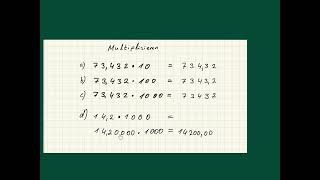 Multiplizieren
a) 73,432 • 10 = 734,32
b) 73,432 • 100 = 7343,2
c) 73,432 • 1000 = 73432
d) 14,2 • 1000 =
14,20,000 • 1000 = 14200,00